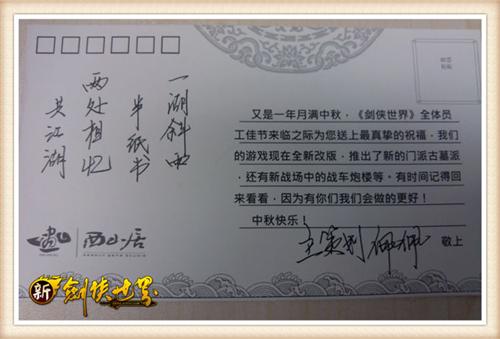 一湖斜雨
半纸书
两处相忆
共江湖
又是一年月满中秋，《剑侠世界》全体员
工佳节来临之际为您送上最真挚的祝福，我们
的游戏现在全新改版，推出了新的门派古墓派
，还有新战场中的战车炮楼等。有时间记得回
来看看，因为有你们我们会做的更好！
中秋快乐！
主策划 佩佩 敬上
西山居
新剑侠世界